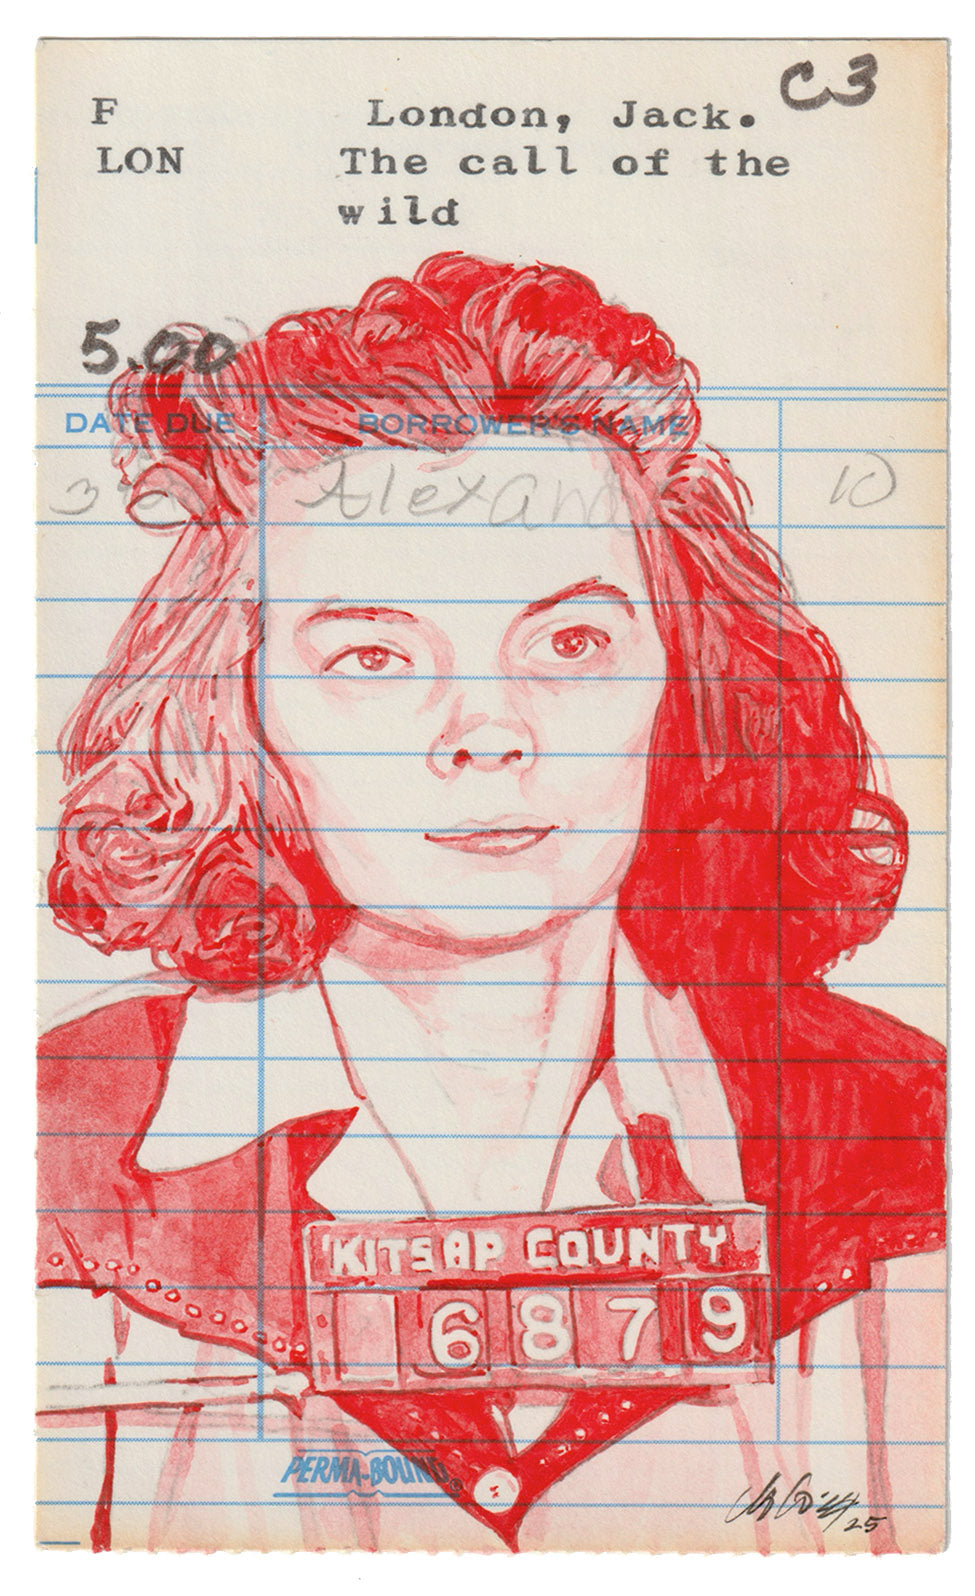 C3
F London, Jack.
LON The call of the
wild
5.00
DATE DUE BORROWER'S NAME
10
KITSAP COUNTY
6879
PERMA-BOUND®
25